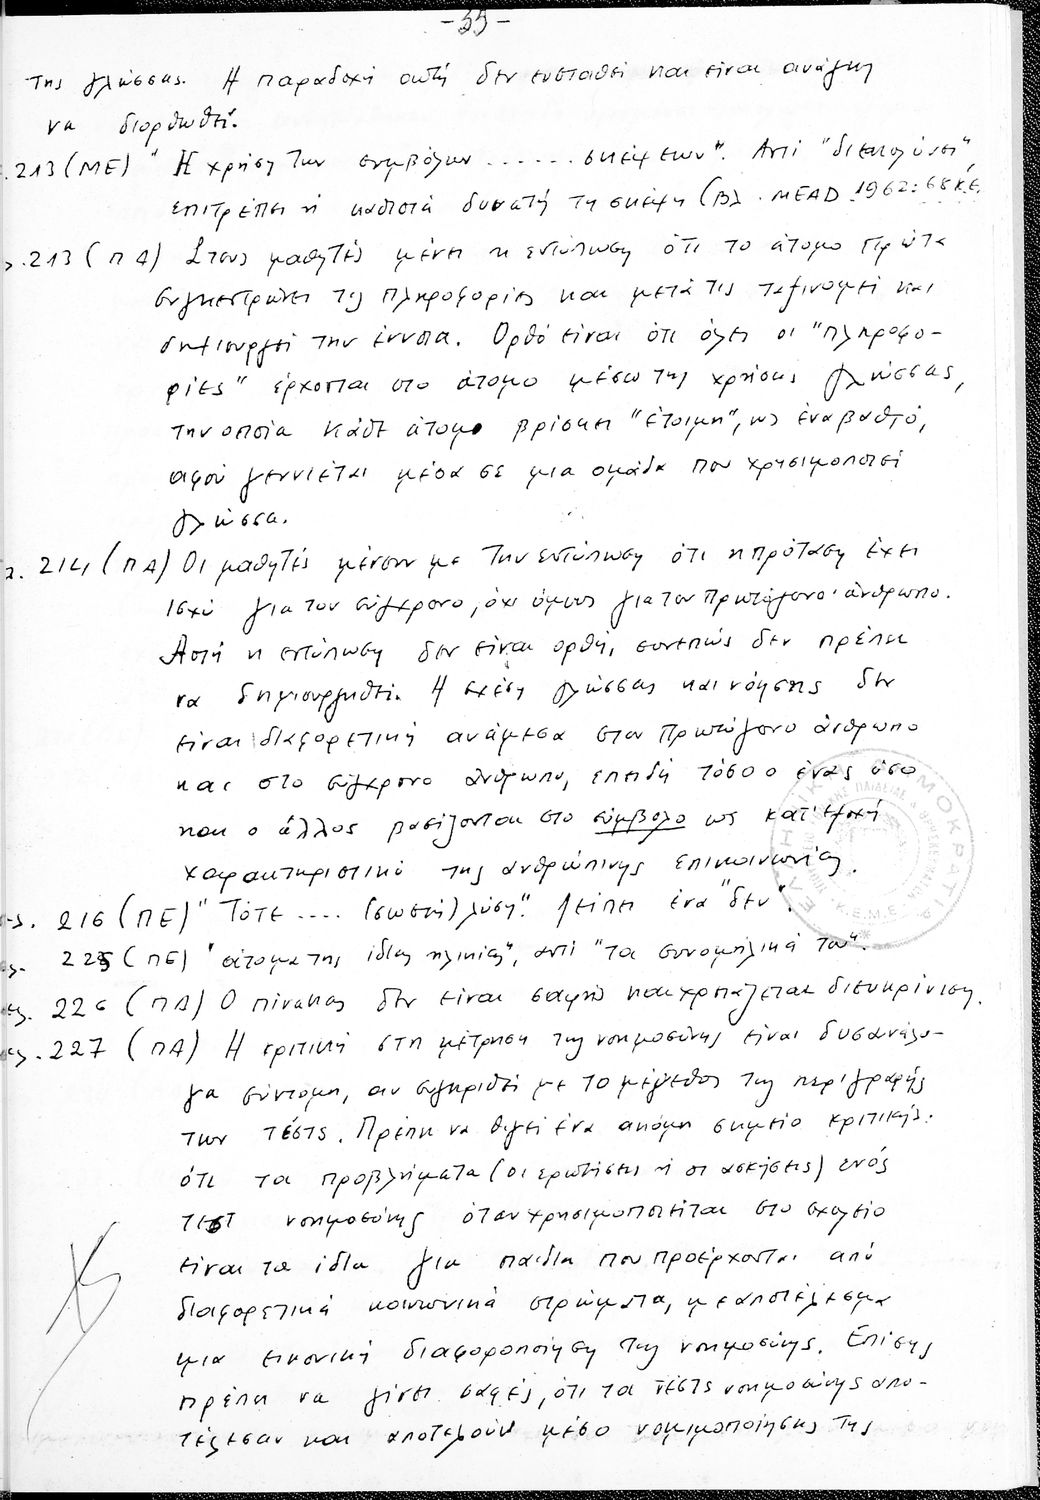 -33-
της γλώσσας. Η παραδοχή αυτή δεν ευσταθεί και είναι ανάγκη
να διορθωθεί.
.213 (ΜΕ) "Η χρήση των συμβόλων ...... σκέψεων". Αντί "διευκολύνει",
επιτρέπει ή καθιστά δυνατή τη σκέψη (βλ. MEAD 1962: 68 κ.ε.
.213 (ΠΑ) Στους μαθητές μένει η εντύπωση ότι το άτομο πρώτα
συγκεντρώνει τις πληροφορίες και μετά τις ταξινομεί και
δημιουργεί την έννοια. Ορθό είναι ότι όλες οι "πληροφο-
ρίες" έρχονται στο άτομο μέσω της χρήσης γλώσσας,
την οποία κάθε άτομο βρίσκει "έτοιμη", ως ένα βαθμό,
αφού γεννιέται μέσα σε μια ομάδα που χρησιμοποιεί
γλώσσα.
λ. 214 (ΠΑ) Οι μαθητές μένουν με την εντύπωση ότι η πρόταση έχει
ισχύ για τον σύγχρονο, όχι όμως για τον πρωτόγονο άνθρωπο.
Αυτή η εντύπωση δεν είναι ορθή, συνεπώς δεν πρέπει
να δημιουργηθεί. Η σχέση γλώσσας και νόησης δεν
είναι διαφορετική ανάμεσα στον πρωτόγονο άνθρωπο
και στο σύγχρονο άνθρωπο, επειδή τόσο ο ένας όσο
και ο άλλος βασίζονται στο σύμβολο ως κατ' εξοχή
χαρακτηριστικό της ανθρώπινης επικοινωνίας.
ελ. 216 (ΠΕ) "Τότε .... (σωστή) λύση". Λείπει ένα "δεν".
ελ. 225 (ΠΕ) "άτομα της ίδιας ηλικίας", αντί "τα συνομήλικά του".
ελ. 226 (ΠΑ) Ο πίνακας δεν είναι σαφής και χρειάζεται διευκρίνιση.
ελ. 227 (ΠΑ) Η κριτική στη μέτρηση της νοημοσύνης είναι δυσανάλο-
γα σύντομη, αν συγκριθεί με το μέγεθος της περιγραφής
των τέστς. Πρέπει να θιγεί ένα ακόμη σημείο κριτικής:
ότι τα προβλήματα (οι ερωτήσεις ή οι ασκήσεις) ενός
τεστ νοημοσύνης όταν χρησιμοποιείται στο σχολείο
είναι τα ίδια για παιδιά που προέρχονται από
διαφορετικά κοινωνικά στρώματα, με αποτέλεσμα
μια εικονική διαφοροποίηση της νοημοσύνης. Επίσης
πρέπει να γίνει σαφές, ότι τα τέστς νοημοσύνης απο-
τέλεσαν και αποτελούν μέσο νομιμοποίησης της
ΕΛΛΗΝΙΚΗ ΔΗΜΟΚΡΑΤΙΑ
Κ.Ε.Μ.Ε.